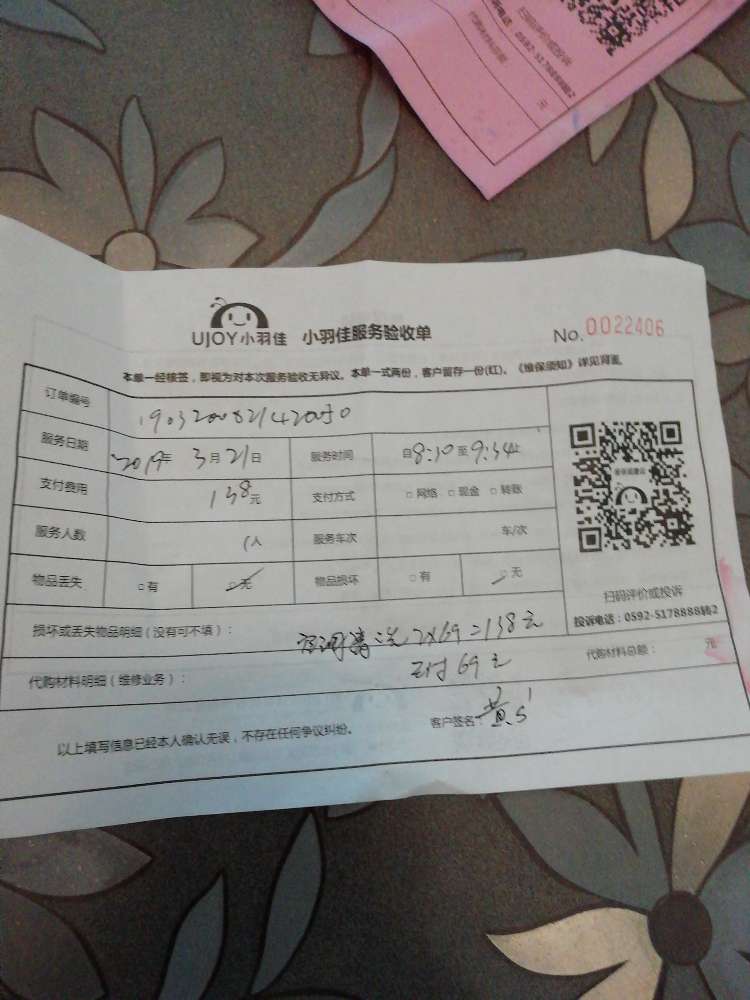 扫码评价或投诉
投诉电话：0592-5178888转2
代购材料总额：
元
UJOY小羽佳 小羽佳服务验收单 No.0022406
本单一经核签，即视为对本次服务验收无异议。本单一式两份，客户留存一份(红)。《维保须知》详见背面。
订单编号
服务日期 2019年 3月21日 服务时间 自8:30至9:34止
支付费用 138元 支付方式 □网络 □现金 □转账
服务人数 1人 服务车次 车/次
物品丢失 □有 □无 物品损坏 □有 □无
扫码评价或投诉
投诉电话：0592-5178888转2
损坏或丢失物品明细（没有可不填）：
空调清洗 2×69=138元
代购材料明细（维修业务）： 已付69元 代购材料总额： 元
以上填写信息已经本人确认无误，不存在任何争议纠纷。 客户签名：黄